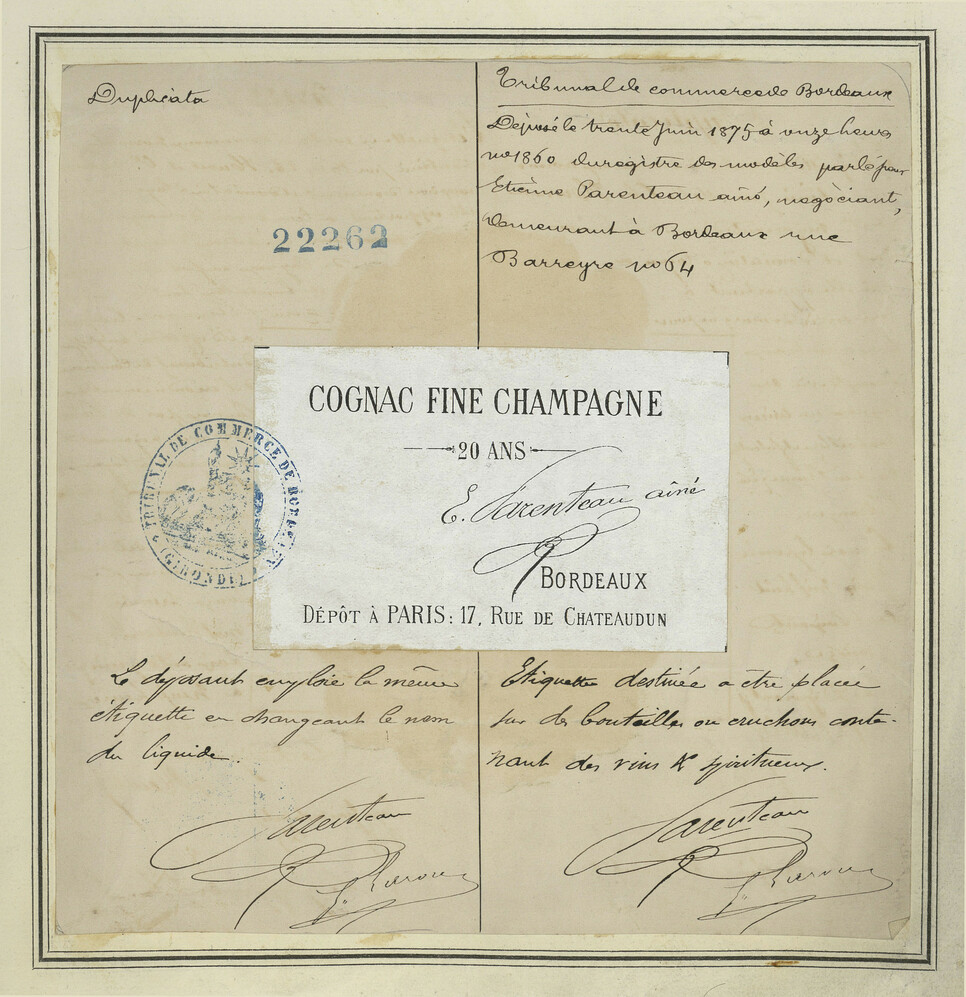 Duplicata
22262
Tribunal de commerce de Bordeaux
Déposé le trente Juin 1875 à onze heures
no 1860 du registre des modèles par le sieur
Etienne Parenteau ainé, negociant,
demeurant à Bordeaux rue
Barreyre no 64
COGNAC FINE CHAMPAGNE
20 ANS
E. Parenteau ainé
BORDEAUX
DÉPÔT À PARIS: 17, RUE DE CHATEAUDUN
TRIBUNAL DE COMMERCE DE BORDEAUX
(GIRONDE)
Le déposant emploie la même
étiquette en changeant le nom
du liquide.
Parenteau
Etiquette destinée a etre placée
sur des bouteilles ou cruchons conte-
nant des vins & spiritueux.
Parenteau